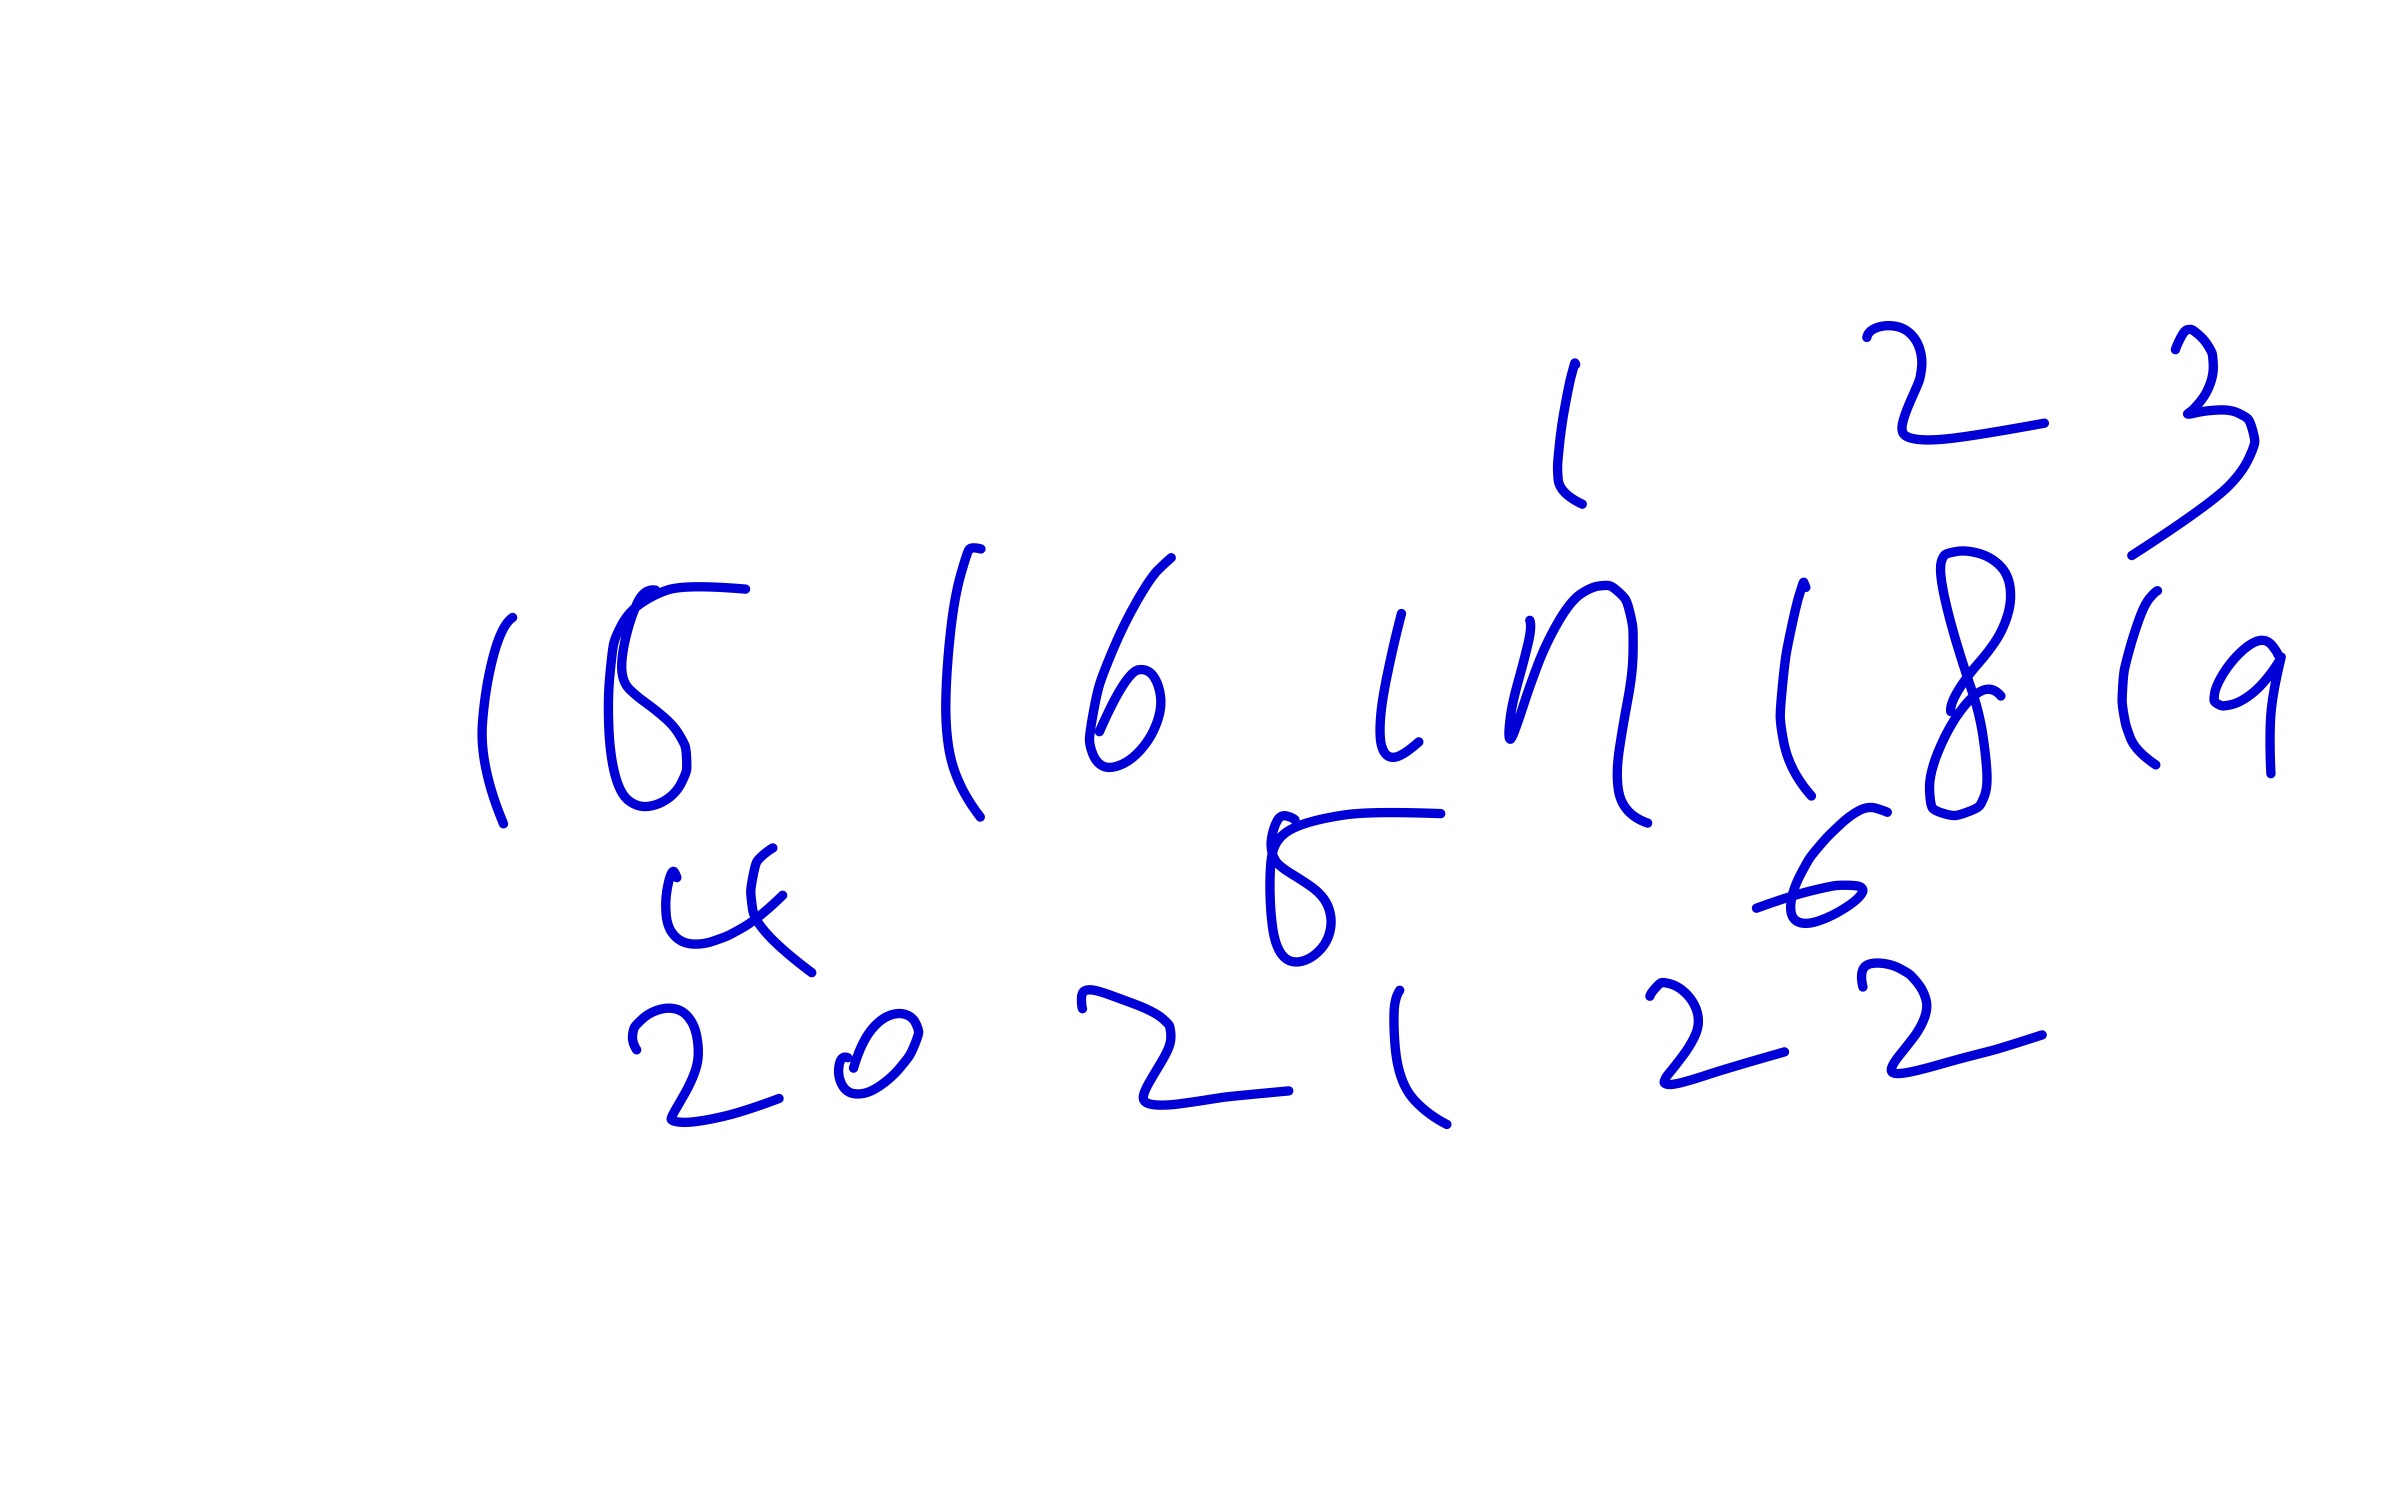 1 2 3
15 16 17 18 19
4 5 6
20 21 22